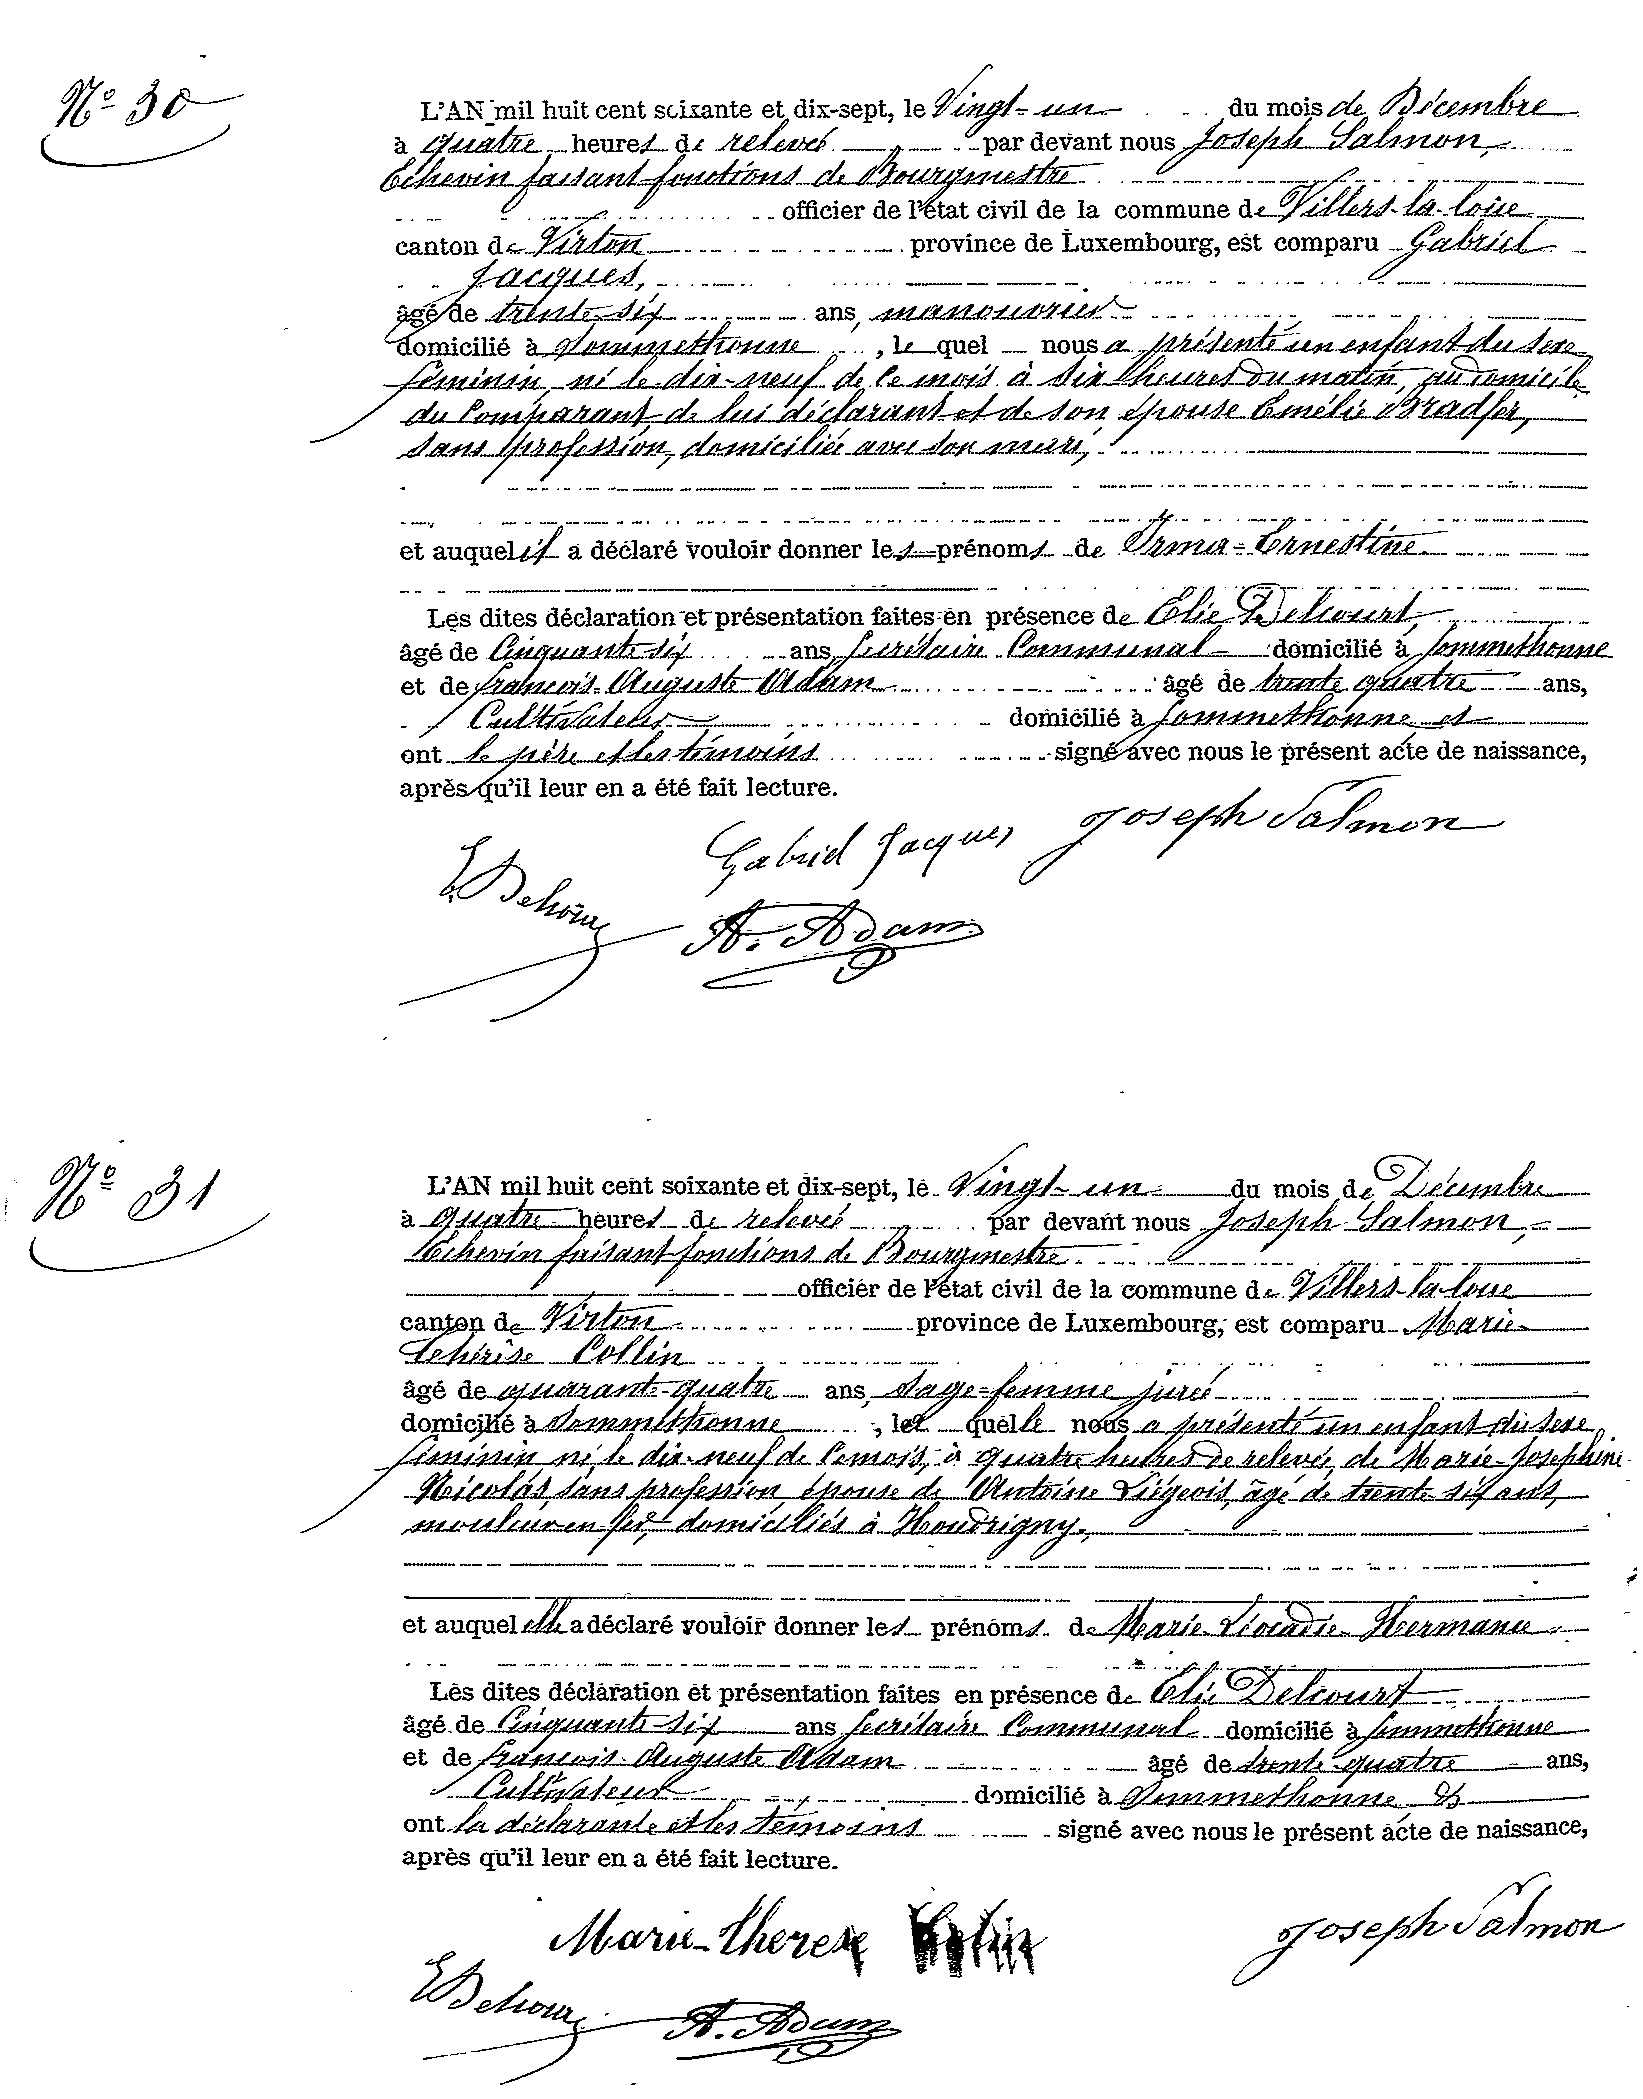 Nº 30
L'AN mil huit cent soixante et dix-sept, le Vingt-un du mois de Décembre
à quatre heures de relevée par devant nous Joseph Salmon,
Echevin faisant fonctions de Bourgmestre
officier de l'état civil de la commune de Villers-la-loue
canton de Virton province de Luxembourg, est comparu Gabriel
Jacques,
âgé de trente-six ans, manouvrier
domicilié à Sommethonne, le quel nous a présenté un enfant du sexe
féminin, né le dix-neuf de ce mois à six heures du matin, au domicile
du Comparant, de lui déclarant et de son épouse Emélie Bradfer,
sans profession, domiciliée avec son mari,
et auquel il a déclaré vouloir donner les prénoms de Irma-Ernestine
Les dites déclaration et présentation faites en présence de Elie Delcourt,
âgé de Cinquante-six ans, Secrétaire Communal domicilié à Sommethonne
et de François-Auguste Adam âgé de trente quatre ans,
Cultivateur domicilié à Sommethonne et
ont le père et les témoins signé avec nous le présent acte de naissance,
après qu'il leur en a été fait lecture.
Joseph Salmon
Gabriel Jacques
E Delcour
A. Adam
Nº 31
L'AN mil huit cent soixante et dix-sept, le Vingt-un du mois de Décembre
à quatre heures de relevée par devant nous Joseph Salmon,
Echevin faisant fonctions de Bourgmestre
officier de l'état civil de la commune de Villers-la-loue
canton de Virton province de Luxembourg, est comparu Marie
Thérèse Collin
âgé de quarante-quatre ans, sage-femme jurée
domicilié à Sommethonne, la quelle nous a présenté un enfant du sexe
féminin né, le dix-neuf de Ce mois, à quatre heures de relevée, de Marie-Joséphine
Nicolas, sans profession, épouse de Antoine Liégeois, âgé de trente-six ans,
mouleur en fer, domiciliés à Houdrigny,
et auquel elle a déclaré vouloir donner les prénoms de Marie Léocadie Hermance
Les dites déclaration et présentation faites en présence de Elie Delcourt
âgé de Cinquante-six ans Secrétaire Communal domicilié à Sommethonne
et de François-Auguste Adam âgé de trente-quatre ans,
Cultivateur domicilié à Sommethonne &
ont la déclarante et les témoins signé avec nous le présent acte de naissance,
après qu'il leur en a été fait lecture.
Joseph Salmon
Marie-Therese Colin
E Delcour
A. Adam